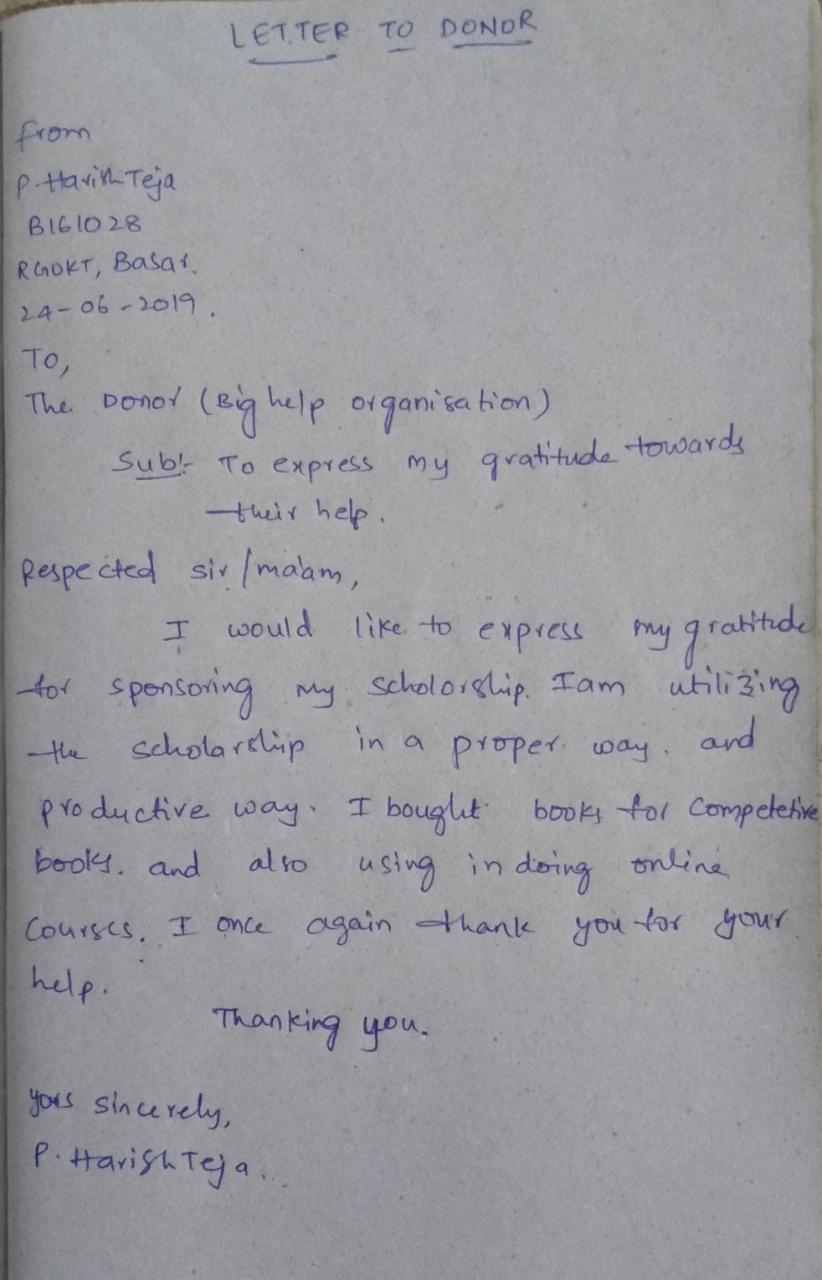 LETTER TO DONOR
from
P. Harish Teja
B161028
RGUKT, Basar.
24-06-2019.
To,
The Donor (Big help organisation)
Sub:- To express my gratitude towards
their help.
Respected sir/ma'am,
I would like to express my gratitude
for sponsoring my scholorship. I am utilizing
the scholarship in a proper way. and
productive way. I bought books for Competetive
books. and also using in doing online
Courses. I once again thank you for your
help.
Thanking you.
yours sincerely,
P. Harish Teja.